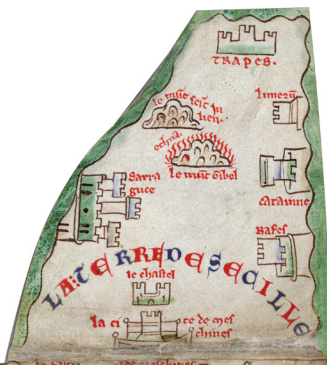 TRAPES.
le munt seint Ju
lien.
ethna.
le munt Gibol
Sarra
guce
Catainne
Rafes
LA: TERRE DE SECILLE
le chastel
la ci
te de mes
chines